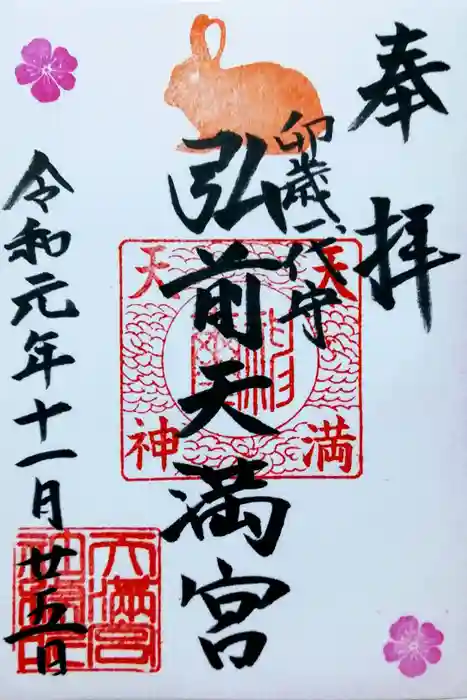 奉拝
卯歳一代守
弘前天満宮
天満
天神
令和元年十一月廿五日